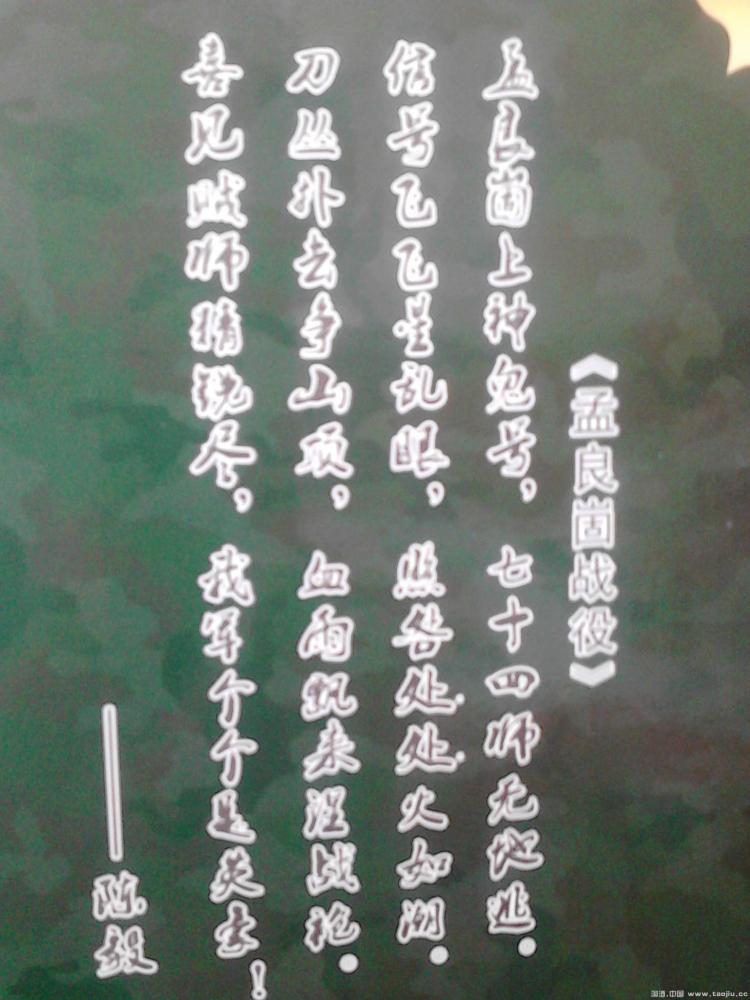 《孟良崮战役》
孟良崮上神鬼号，七十四师无地逃。
信号飞飞星乱眼，照告处处火如潮。
刀丛扑去争山顶，血雨飘来湿战袍。
喜见贼师精锐尽，我军个个是英豪！
——陈毅
www.taojiu.cc